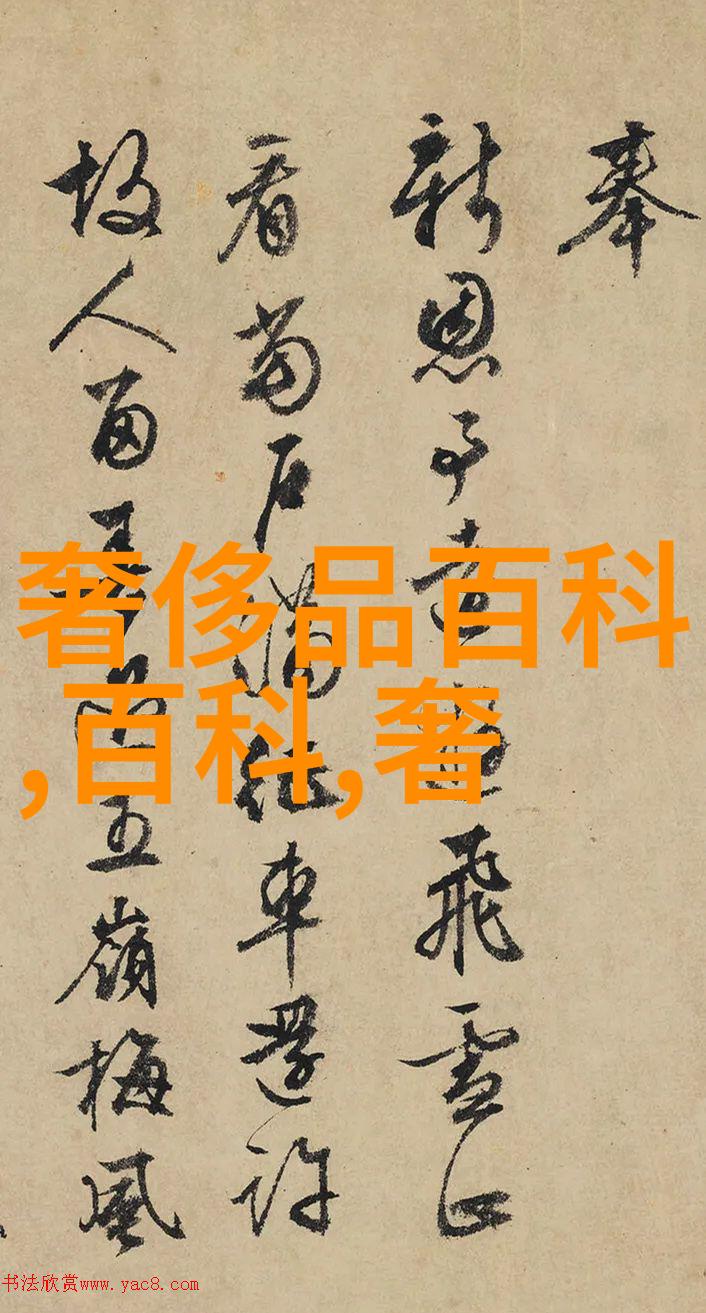 奉
新恩予飛雪正
看車還許
故人留五嶺梅風
奢侈品百科
,百科,奢
书法欣赏www.yac8.com